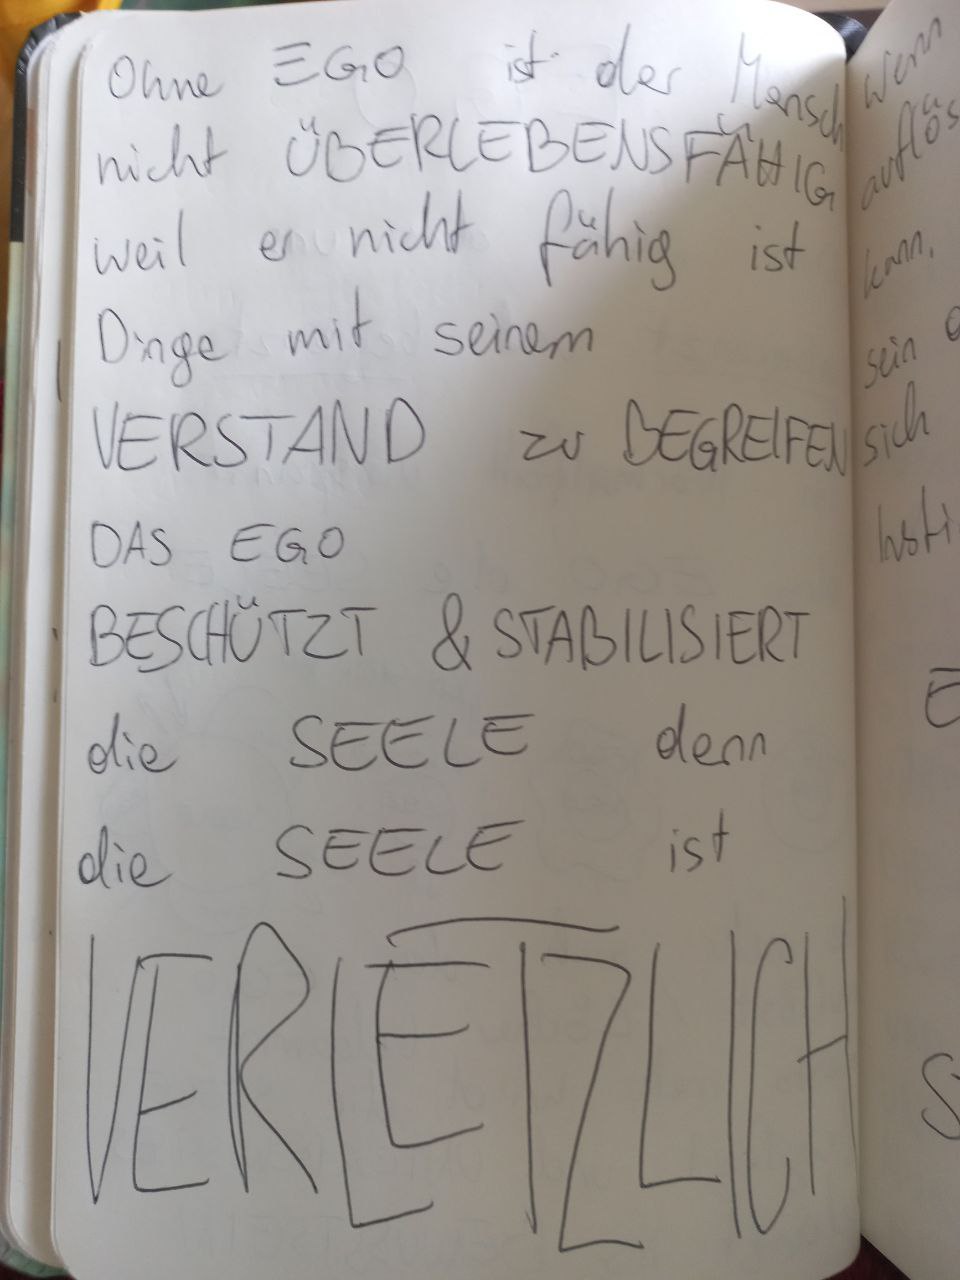 Ohne EGO ist der Mensch
nicht ÜBERLEBENSFÄHIG
weil er nicht fähig ist
Dinge mit seinem
VERSTAND zu BEGREIFEN
DAS EGO
BESCHÜTZT & STABILISIERT
die SEELE denn
die SEELE ist
VERLETZLICH
wenn
auflös
kann,
sein
sich